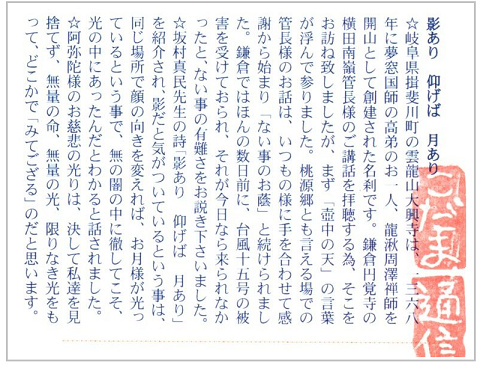 影あり　仰げば　月あり
☆岐阜県揖斐川町の雲龍山大興寺は、一三六八
年に夢窓国師の高弟のお一人、龍湫周澤禅師を
開山として創建された名刹です。鎌倉円覚寺の
横田南嶺管長様のご講話を拝聴する為、そこを
お訪ね致しましたが、まず「壺中の天」の言葉
が浮んで参りました。桃源郷とも言える場での
管長様のお話は、いつもの様に手を合わせて感
謝から始まり「ない事のお蔭」と続けられまし
た。鎌倉ではほんの数日前に、台風十五号の被
害を受けておられ、それが今日なら来られなか
ったと、ない事の有難さをお説き下さいました。
☆坂村真民先生の詩「影あり　仰げば　月あり」
を紹介され、影だと気がついているという事は、
同じ場所で顔の向きを変えれば、お月様が光っ
ているという事で、無の闇の中に徹してこそ、
光の中にあったんだとわかると話されました。
☆阿弥陀様のお慈悲の光りは、決して私達を見
捨てず、無量の命　無量の光　限りなき光をも
って、どこかで「みてござる」のだと思います。
こだま
通信